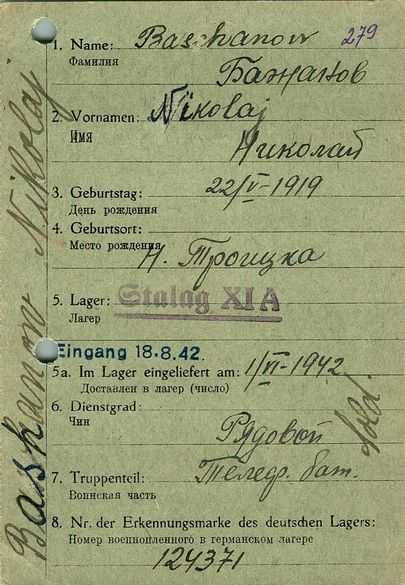 279
1. Name: Baschanow
Фамилия
Бажанов
2. Vornamen: Nikolaj
Имя
Николай
3. Geburtstag: 22/V-1919
День рождения
4. Geburtsort:
Место рождения
Н. Троицка
5. Lager: Stalag XI A
Лагер
Eingang 18.8.42.
5a. Im Lager eingeliefert am: 1/VI-1942
Доставлен в лагер (число)
6. Dienstgrad:
Чин
Рядовой
Sold.
7. Truppenteil: Телеф. бат.
Воинская часть
8. Nr. der Erkennungsmarke des deutschen Lagers:
Номер военнопленного в германском лагере
124371
Baskanow Nikolaj